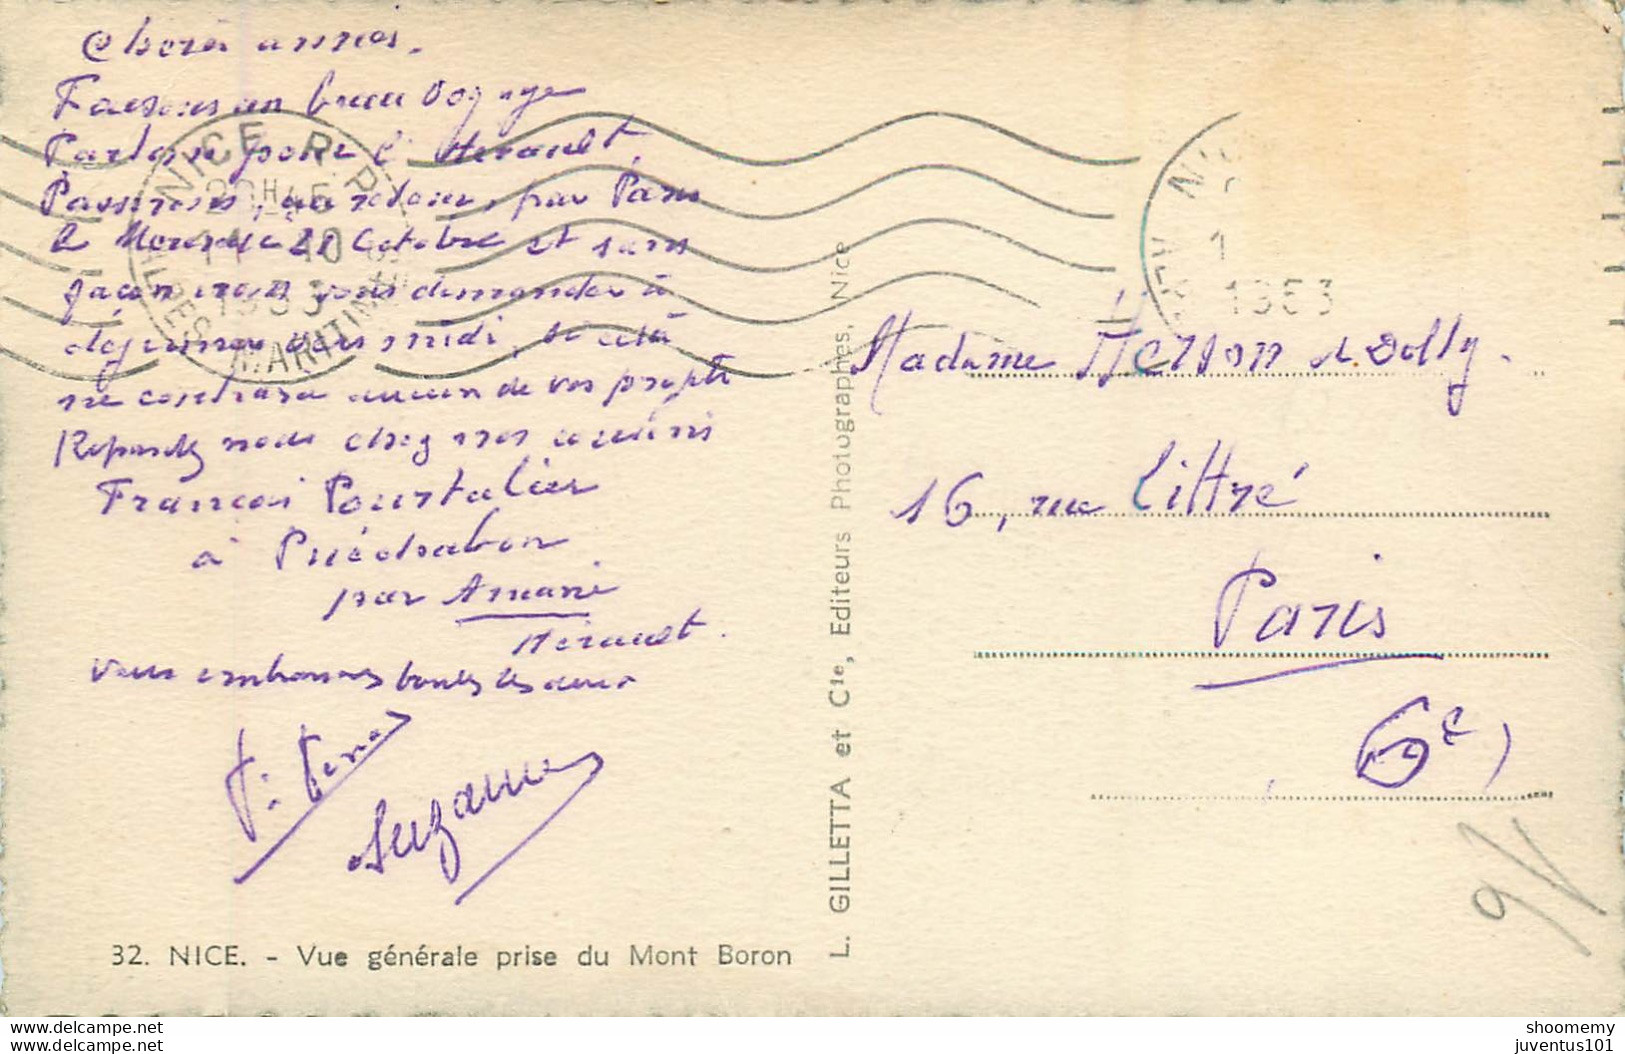 Faisons un beau voyage
Partons pour l'Hérault.
Passerons, au retour, par Paris
le Mercredi 21 Octobre et sans
façon irons vous demander à
déjeuner vers midi, si cela
ne contrarie aucun de vos projets
Répondez nous chez nos cousins
François Poustalier
à
par Aniane
Hérault.
Vous embrassons toutes les deux
Suzanne
NICE R.P.
20H45
10
1953
ALPES MARITIMES
1953
Madame et Dolly.
16, rue Littré
Paris
6e)
L. GILLETTA et Cie, Editeurs Photographes, Nice
32. NICE. - Vue générale prise du Mont Boron
www.delcampe.net
www.delcampe.net
shoomemy
juventus101